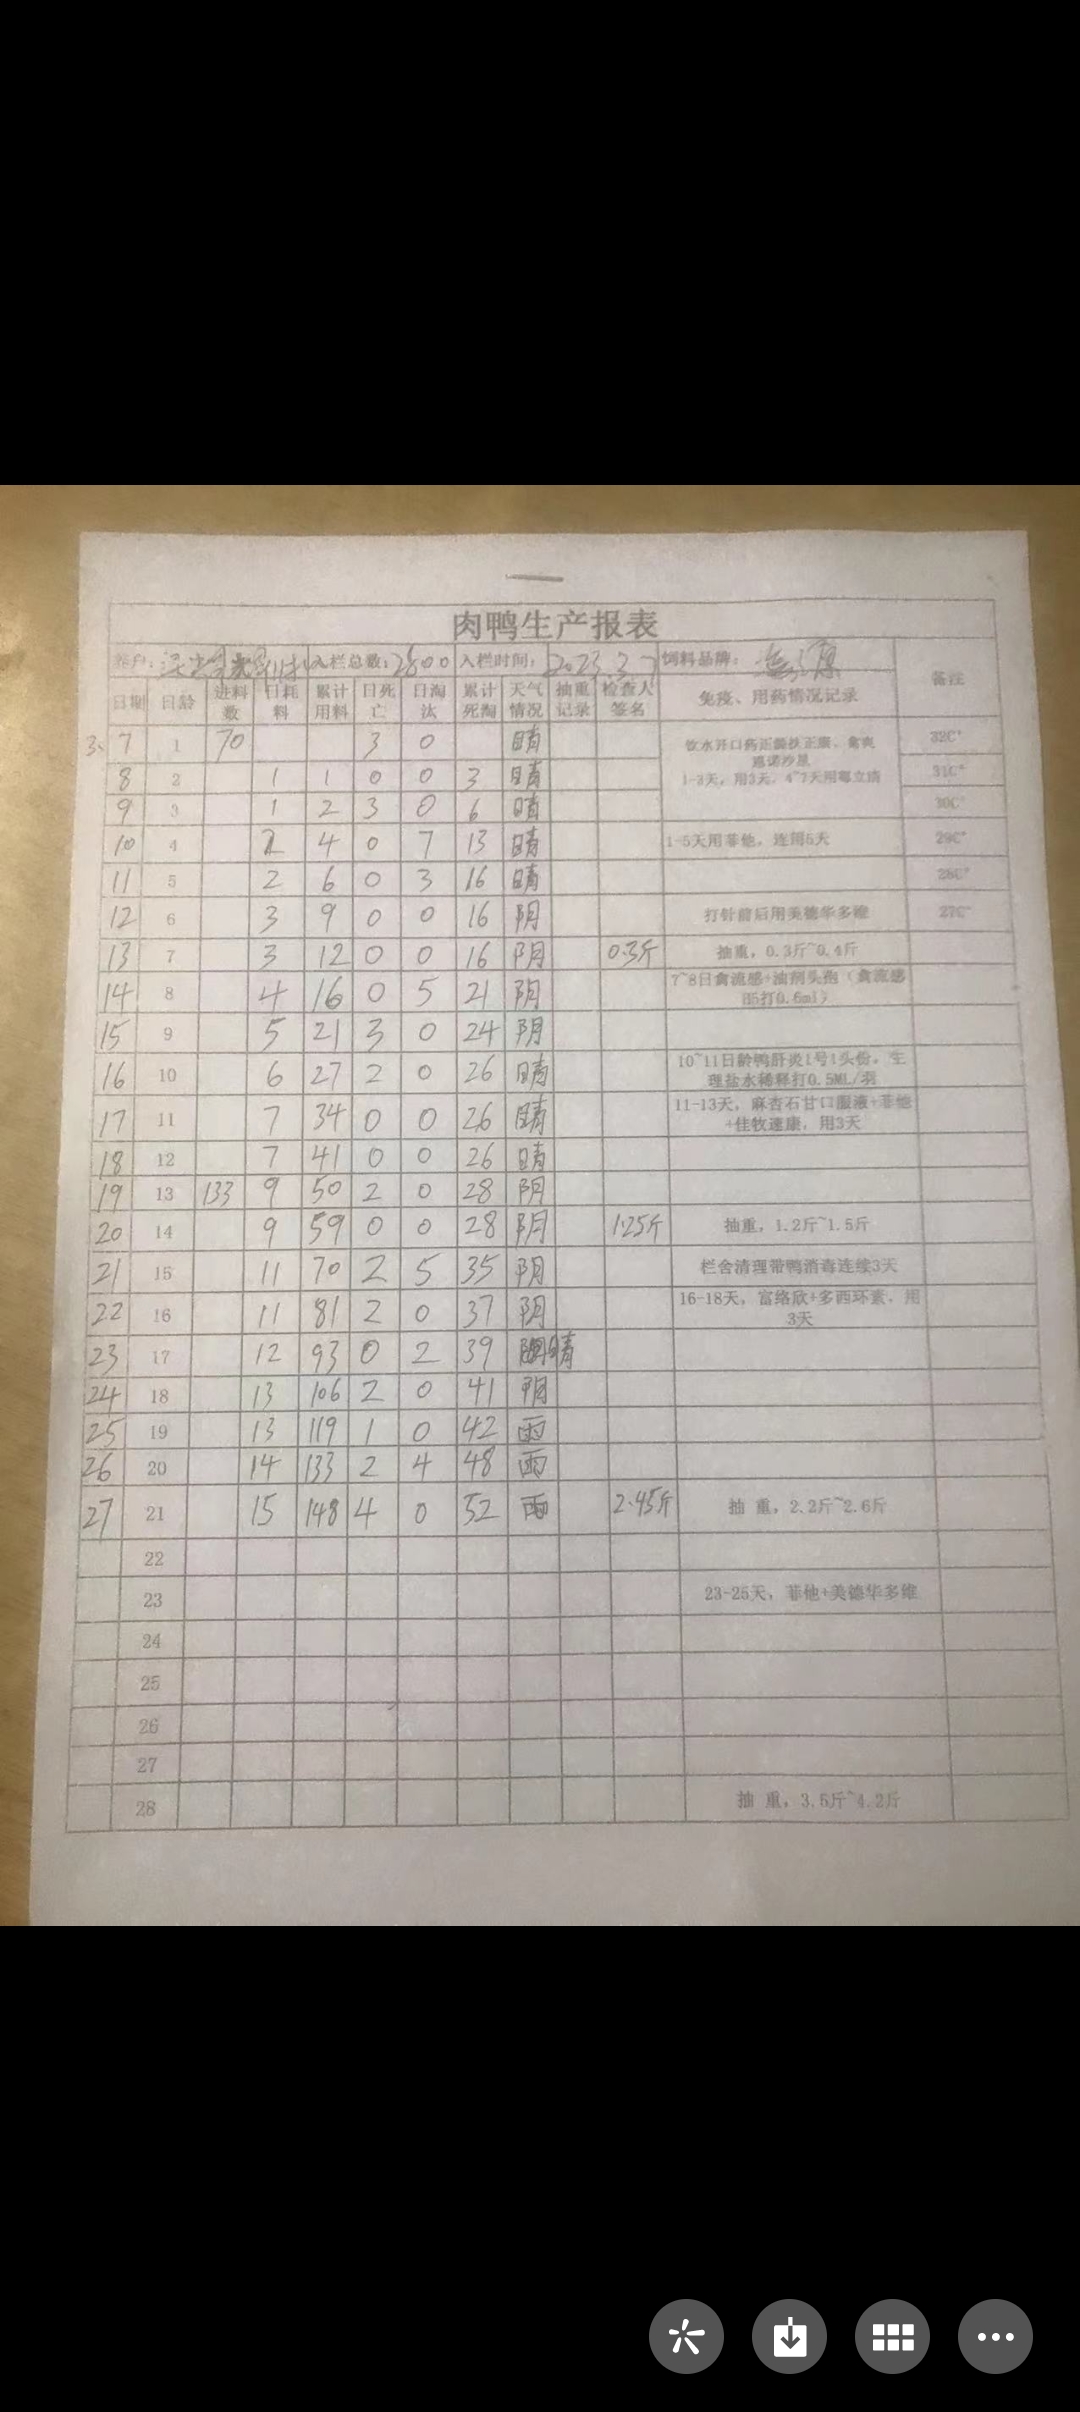 肉鸭生产报表
养户: 入栏总数:2800 入栏时间:2023.3.7 饲料品牌: 备注
日期 日龄 进料数 日耗料 累计用料 日死亡 日淘汰 累计死淘 天气情况 抽重记录 检查人签名 免疫、用药情况记录
3. 7 1 70 3 0 晴 32C°
1-3天，用3天，4~7天用毒立清
8 2 1 1 0 0 3 晴 31C°
9 3 1 2 3 0 6 晴 30C°
10 4 2 4 0 7 13 晴 1-5天用菲他，连用5天 29C°
11 5 2 6 0 3 16 晴 28C°
12 6 3 9 0 0 16 阴 打针前后用美德华多维 27C°
13 7 3 12 0 0 16 阴 0.3斤 抽重，0.3斤~0.4斤
14 8 4 16 0 5 21 阴 7~8日禽流感+油剂头孢（禽流感H5打0.6ml）
15 9 5 21 3 0 24 阴
16 10 6 27 2 0 26 晴 10~11日龄鸭肝炎1号1头份，生理盐水稀释打0.5ML/羽
17 11 7 34 0 0 26 晴 11-13天，麻杏石甘口服液+菲他+佳牧速康，用3天
18 12 7 41 0 0 26 晴
19 13 133 9 50 2 0 28 阴
20 14 9 59 0 0 28 阴 1.25斤 抽重，1.2斤~1.5斤
21 15 11 70 2 5 35 阴 栏舍清理带鸭消毒连续3天
22 16 11 81 2 0 37 阴 16-18天，富络欣+多西环素，用3天
23 17 12 93 0 2 39 晴
24 18 13 106 2 0 41 阴
25 19 13 119 1 0 42 雨
26 20 14 133 2 4 48 雨
27 21 15 148 4 0 52 雨 2.45斤 抽 重，2.2斤~2.6斤
22
23 23-25天，菲他+美德华多维
24
25
26
27
28 抽 重，3.5斤~4.2斤